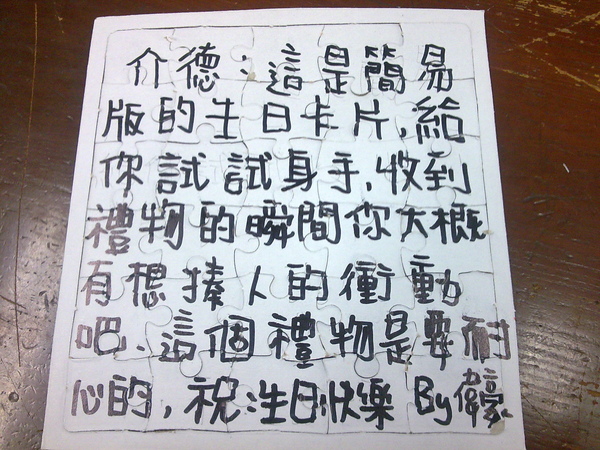 介德：這是簡易
版的生日卡片,給
你試試身手,收到
禮物的瞬間你大概
有想揍人的衝動
吧、這個禮物是要耐
心的,祝:生日快樂 By偉豪